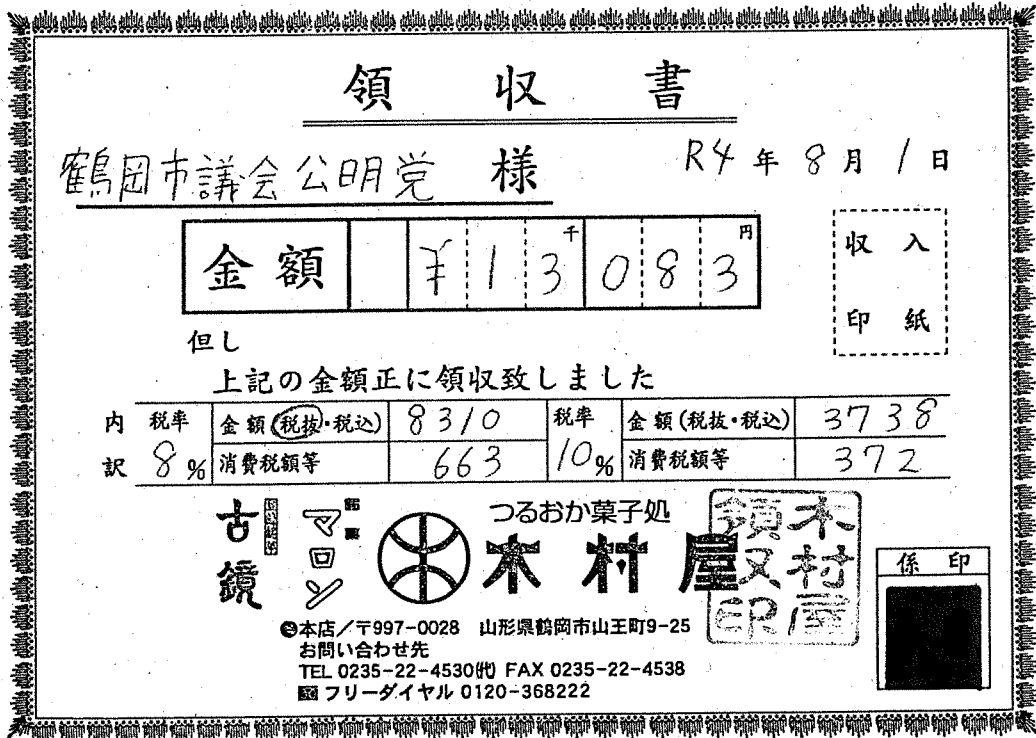 領収書
鶴岡市議会公明党 様 R4年8月1日
金額 ¥13千083円
収入
印紙
但し
上記の金額正に領収致しました
内訳 税率 8% 金額(税抜・税込) 8310 税率 10% 金額(税抜・税込) 3738
消費税額等 663 消費税額等 372
古鏡 マロン つるおか菓子処
木村屋
木村屋領収印
係印
本店/〒997-0028 山形県鶴岡市山王町9-25
お問い合わせ先
TEL 0235-22-4530(代) FAX 0235-22-4538
フリーダイヤル 0120-368222